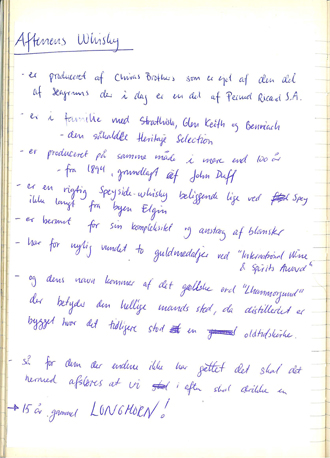 Aftenens Whisky
- er produceret af Chivas Brothers som er ejet af den del
af Seagrams der i dag er en del af Pernod Ricard S.A.
- er i familie med Strathisla, Glen Keith og Benriach
- den såkaldte Heritage Selection
- er produceret på samme måde i mere end 100 år
- fra 1894, grundlagt af John Duff
- er en rigtig Speyside-whisky beliggende lige ved Spey
ikke langt fra byen Elgin
- er berømt for sin kompleksitet og anstrøg af blomster
- har for nylig vundet to guldmedaljer ved "International Wine
& Spirits Award"
- og dens navn kommer af det gæliske ord
der betyder den hellige mands sted, da destilleriet er
bygget hvor det tidligere stod en oldtidskirke.
- så for dem der endnu ikke har gættet det skal det
hermed afsløres at vi i aften skal drikke en
→ 15 år gammel LONGMORN!